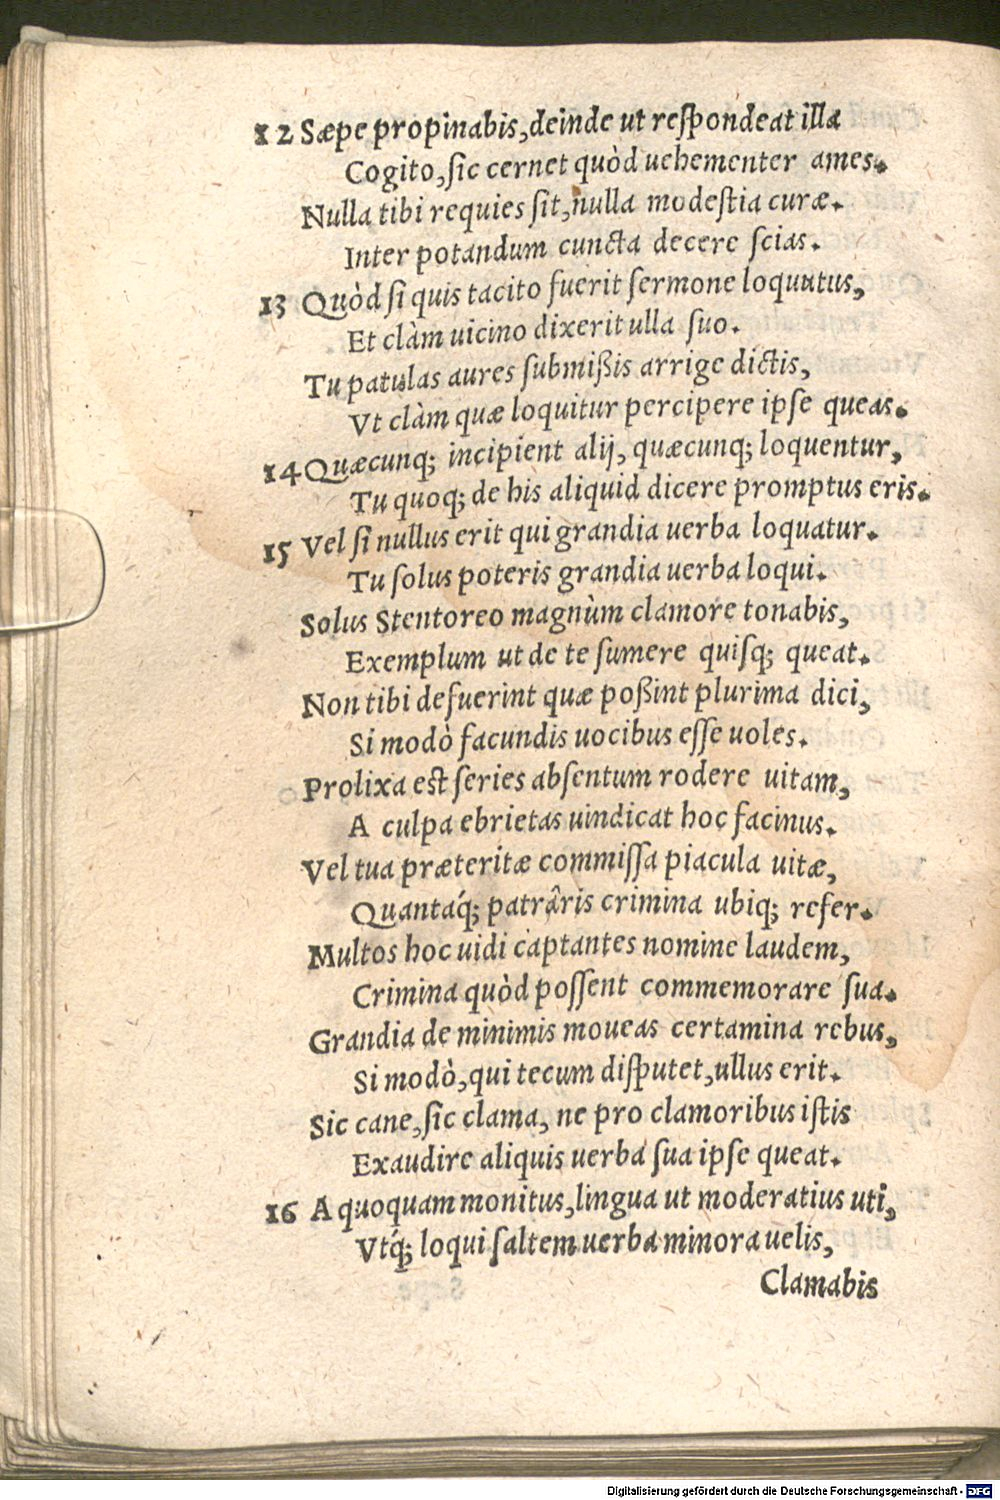 12 Sæpe propinabis, deinde ut respondeat illa
Cogito, sic cernet quòd uehementer ames.
Nulla tibi requies sit, nulla modestia curæ.
Inter potandum cuncta decere scias.
13 Quòd si quis tacito fuerit sermone loquutus,
Et clàm uicino dixerit ulla suo.
Tu patulas aures submißis arrige dictis,
Vt clàm quæ loquitur percipere ipse queas.
14 Quæcunq; incipient alij, quæcunq; loquentur,
Tu quoq; de his aliquid dicere promptus eris.
15 Vel si nullus erit qui grandia uerba loquatur.
Tu solus poteris grandia uerba loqui.
Solus Stentoreo magnùm clamore tonabis,
Exemplum ut de te sumere quisq; queat.
Non tibi defuerint quæ poßint plurima dici,
Si modò facundis uocibus esse uoles.
Prolixa est series absentum rodere uitam,
A culpa ebrietas uindicat hoc facinus.
Vel tua præteritæ commissa piacula uitæ,
Quantaq́; patrâris crimina ubiq; refer.
Multos hoc uidi captantes nomine laudem,
Crimina quòd possent commemorare sua.
Grandia de minimis moueas certamina rebus,
Si modò, qui tecum disputet, ullus erit.
Sic cane, sic clama, ne pro clamoribus istis
Exaudire aliquis uerba sua ipse queat.
16 A quoquam monitus, lingua ut moderatius uti,
Vtq́; loqui saltem uerba minora uelis,
Clamabis
Digitalisierung gefördert durch die Deutsche Forschungsgemeinschaft - DFG